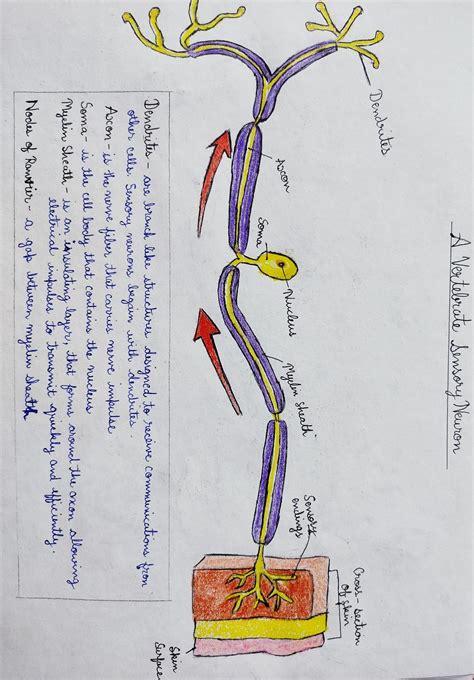 A Vertebrate Sensory Neuron
Dendrites
Axon
Soma
Nucleus
Myelin sheath
Sensory
endings
Cross-section
of skin
Skin
Surface
Dendrites - are branch like structures designed to receive communications from
other cells. Sensory neurons begain with dendrites.
Axon - is the nerve fiber that carries nerve impulse
Soma - is the cell body that contains the nucleus
Myelin Sheath - is an insulating layer, that forms around the axon allowing
electrical impulses to transmit quickly and efficiently.
Nodes of Ranvier - a gap between myelin sheath